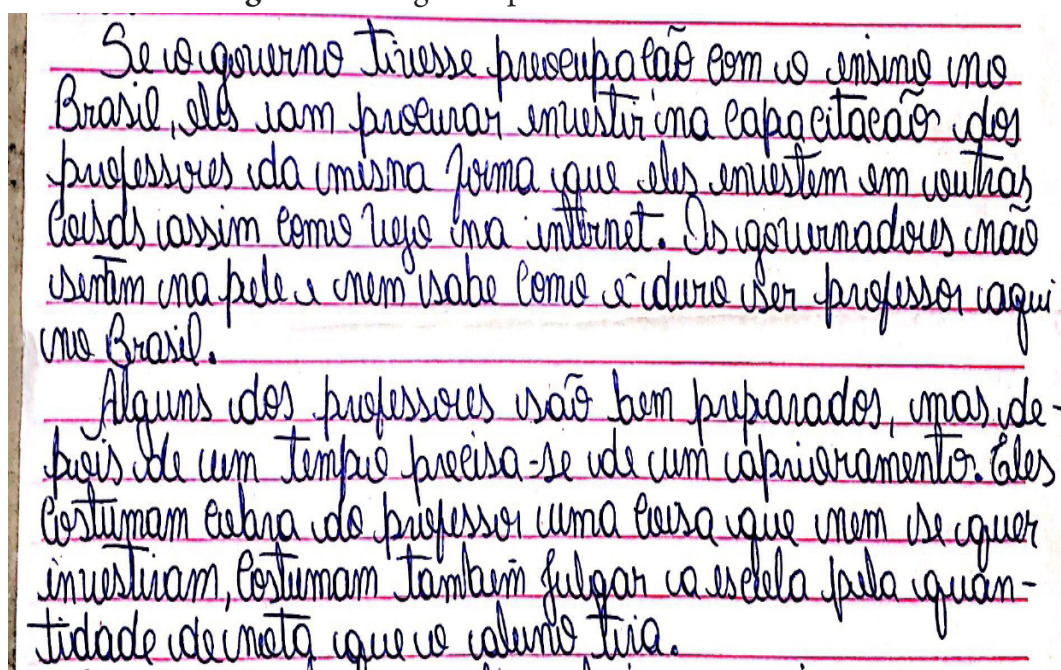 Se o governo tivesse preocupalão com o ensino no
Brasil, eles iam procurar envestir na capacitacão dos
professores da misna forma que eles envestem em outras
coisas assim como vejo na internet. Os governadores não
sentem na pele e nem sabe como é duro ser professor aqui
no Brasil.
Alguns dos professores são bem preparados, mas de-
pois de um tempo precisa-se de um aprioramento. Eles
costumam cobra do professor uma coisa que nem se quer
investiram, costumam tambem julgar a escola pela quan-
tidade de nota que o aluno tira.